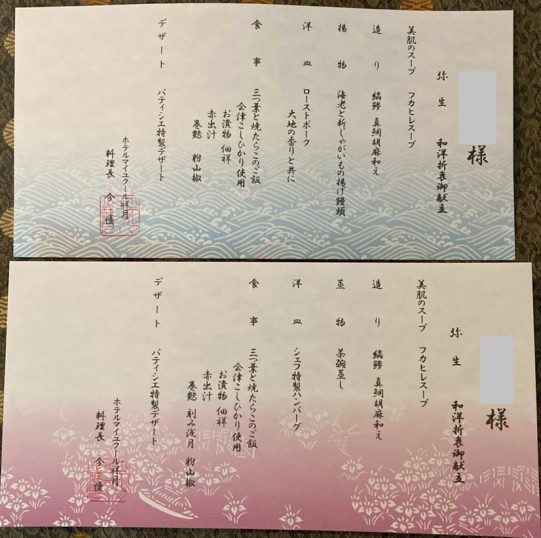 様
弥生 和洋折衷御献立
美肌のスープ フカヒレスープ
造り 縞鯵 真鯛胡麻和え
揚物 海老と新じゃがいもの揚げ饅頭
洋皿 ローストポーク
大地の香りと共に
食事 三つ葉と焼たらこのご飯
会津こしひかり使用
お漬物 佃祥
赤出汁
巻麩 粉山椒
デザート パティシエ特製デザート
ホテルマイユクール祥月
料理長
様
弥生 和洋折衷御献立
美肌のスープ フカヒレスープ
造り 縞鯵 真鯛胡麻和え
蒸物 茶碗蒸し
洋皿 シェフ特製ハンバーグ
食事 三つ葉と焼たらこのご飯
会津こしひかり使用
お漬物 佃祥
赤出汁
巻麩 刻み浅月 粉山椒
デザート パティシエ特製デザート
ホテルマイユクール祥月
料理長